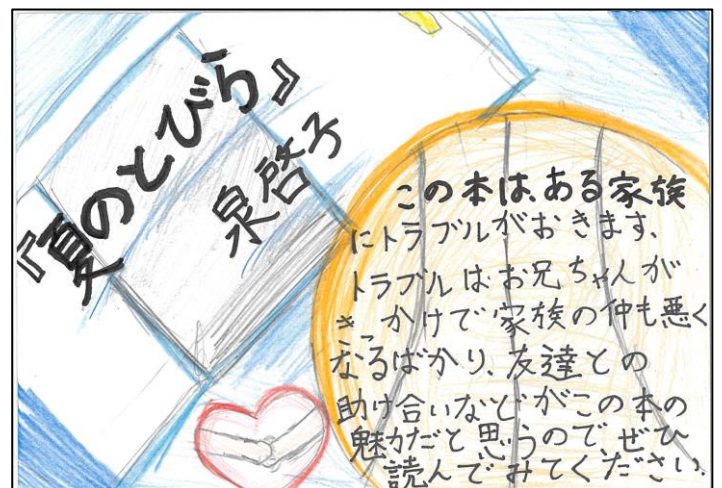 『夏のとびら』
泉啓子
この本は、ある家族
にトラブルがおきます、
トラブルはお兄ちゃんが
きっかけで家族の仲も悪く
なるばかり、友達との
助け合いなどがこの本の
魅力だと思うので、ぜひ
読んでみてください。